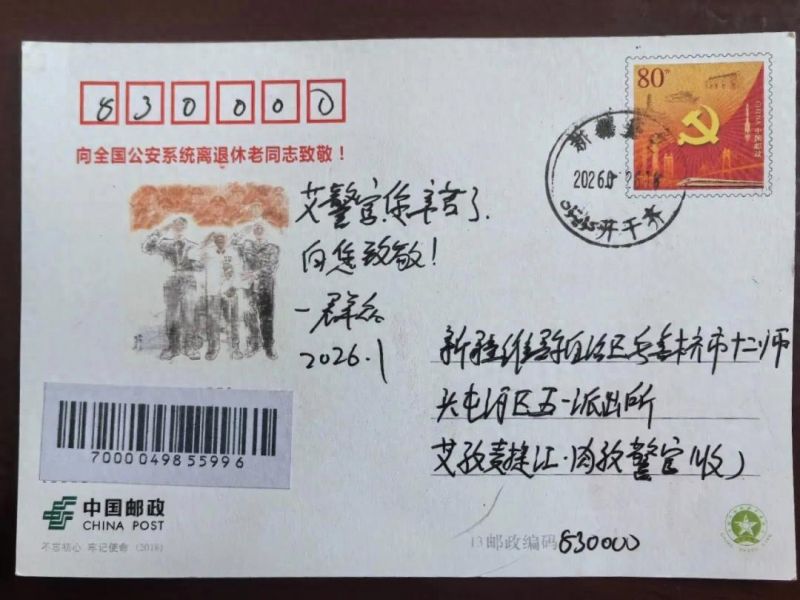 830000
向全国公安系统离退休老同志致敬！
80分
CHINA 中国邮政
新疆
2026.0
开干齐
艾警官您辛苦了.
向您致敬!
一群众
2026.1
新疆维吾尔自治区乌鲁木齐市十二师
头屯河区五一派出所
艾孜麦提江·肉孜警官(收)
7000049855996
中国邮政
CHINA POST
不忘初心 牢记使命 (2018)
13邮政编码 830000